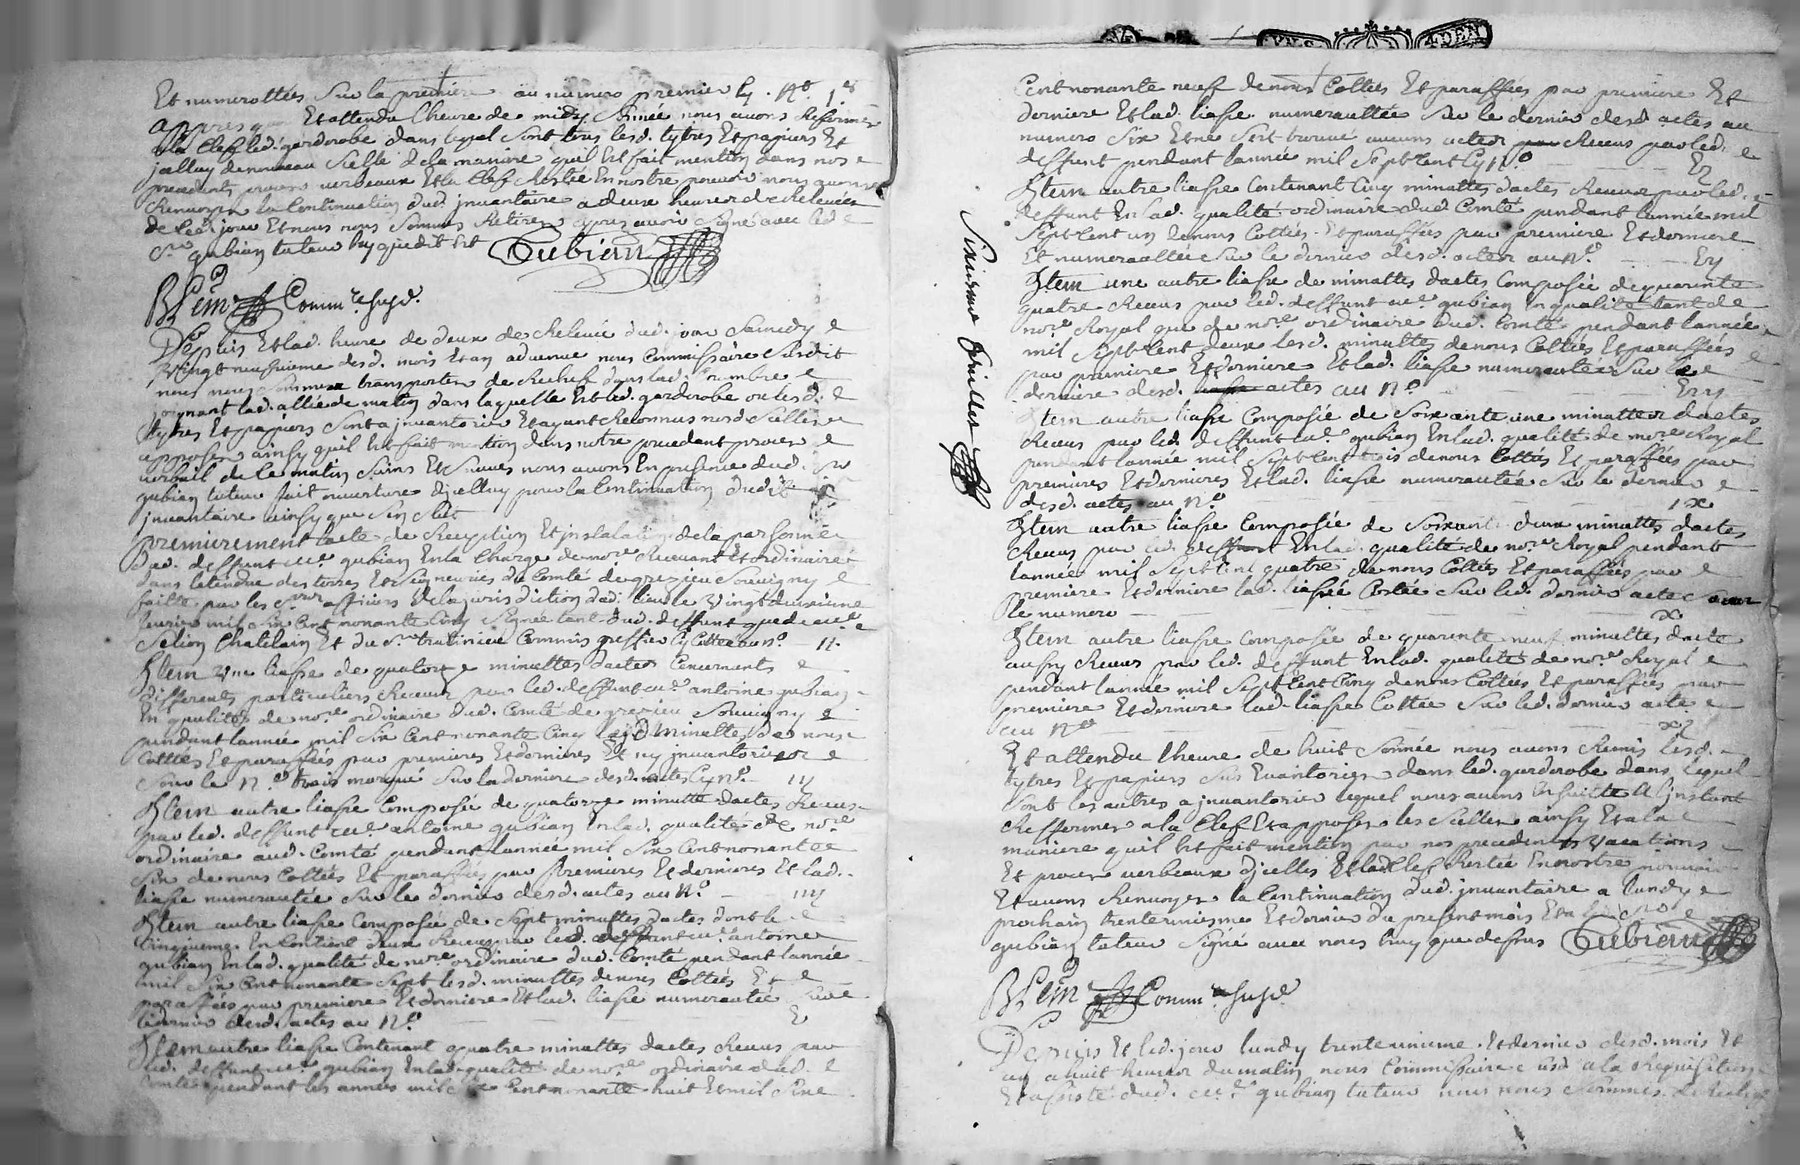 Et numerottées sur la premiere au numero premier cy . N.o 1.er
Et attendu lheure de midy sonnée nous avons refermé
a la clef led. garderobe dans lequel sont tous lesd. tytres Et papiers Et
jcelluy de nouveau scellé de la maniere quil Est fait mention dans nos
precedents proces verbeaux Et la clef restée En nostre pouvoir nous avons
renvoyé la Continuation dud. jnventaire a deux heures de relevée
de ced. jour Et nous nous sommes retirés apres avoir signé avec led.
Sr. gubian tuteur luy que dit Est Gubian
Comm.re susd.
Depuis Et lad. heure de deux de relevée dud. jour samedy
vingt neufvieme desd. mois Et an advenue nous Commissaire susdit
nous nous sommes transportés de rechef dans lad. chambre
joignant lad. allée de matin dans laquelle Est led. garderobe ou lesd.
tytres Et papiers sont a jnventorier Et ayant reconnus nosd. scellés
apposés ainsy quil Est fait mention dans notre precedant proces
verbail de ce matin sains Et sauves nous avons En presence dud. Sr
gubian tuteur fait ouverture djcelluy pour la Continuation dudit
jnventaire ainsy que sensuit
premierement lacte de reception Et jnstalation de la personne
dud. deffunt me. gubian En la Charge de nore. recevant Et ordinaire
dans letendue des terres Et seigneuries du Comté de grezieu souvigny
faitte par les srs officiers de la jurisdiction dud. lieu le vingt deuxieme
fevrier mil six Cent nonante Cinq signée tant dud. deffunt que de me.
Chatelain Et du Sr. Commis greffier cy Cotté au No. — 11.
Item une liasse de quatorze minuttes dactes Concernants
differents particuliers receus par led. deffunt me. antoine gubian
En qualité de nore. ordinaire dud. Comté de grezieu souvigny
pendant lannée mil six Cent nonante Cinq lesd. minuttes de nous
Cottées Et paraffées par premieres Et dernieres Et cy jnventoriées
sous le N.o trois marqué sur la derniere desd. actes Cy No. — 111
Item autre liasse Composée de quatorze minutte dactes receus
par led. deffunt me. antoine gubian En lad. qualité de nore.
ordinaire aud. Comté pendant lannée mil six Cent nonante
six de nous Cottées Et paraffées par premieres Et dernieres Et lad.
liasse numerautée sur le dernier desd. actes au No. — 1111
Item autre liasse Composée de sept minuttes dactes dont le
Cinqieme En Contient deux receus par led. deffunt me. antoine
gubian En lad. qualité de nore. ordinaire dud. Comté pendant lannée
mil six Cent nonante sept lesd. minuttes de nous Cottées Et
paraffées par premiere Et derniere Et lad. liasse numerautée sur
le dernier desd. actes au No. — V
Item autre liasse Contenant quatre minuttes dactes receus par
led. deffunt me. gubian En lad. qualité de nore. ordinaire dud.
Comté pendant les années mil six Cent nonante huit Et mil six
Cent nonante neuf de nous Cottées Et paraffées par premiere Et
derniere Et lad. liasse numerauttée sur le dernier desd. actes au
numero six Et ne sest trouvé aucuns actes receus par led.
deffunt pendant lannée mil sept Cent Cy No. — VI
Item autre liasse Contenant Cinq minuttes dactes receus par led.
deffunt En lad. qualité ordinaire dud. Comté pendant lannée mil
sept Cent un de nous Cottées Et paraffées par premiere Et derniere
Et numerauttée sur le dernier desd. actes au No. — VII
Item une autre liasse de minuttes dactes Composée de quarente
quatre receus par led. deffunt me. gubian En qualité tant de
nore. Royal que de nore. ordinaire dud. Comté pendant lannée
mil sept Cent deux lesd. minuttes de nous Cottées Et paraffées
par premiere Et derniere Et lad. liasse numerautée sur le
derniere desd. actes au No. — VIII
Item autre liasse Composée de soixante une minuttes dactes
receus par led. deffunt me. gubian En lad. qualité de nore. Royal
pendant lannée mil sept Cent trois de nous Cottées Et paraffées par
premieres Et dernieres Et lad. liasse numerautée sur le dernier
desd. actes au No. — IX
Item autre liasse Composée de soixante deux minuttes dactes
receus par led. deffunt En lad. qualité de nore. Royal pendant
lannée mil sept Cent quatre de nous Cottées Et paraffées par
premiere Et derniere lad. liasse Cottée sur led. dernier acte sous
le numero — X
Item autre liasse Composée de quarente neuf minuttes dacte
aussy receus par led. deffunt En lad. qualité de nore. Royal
pendant lannée mil sept Cent Cinq de nous Cottées Et paraffées par
premiere Et derniere lad. liasse Cottée sur led. dernier acte
au No. — XI
Et attendu lheure de huit sonnée nous avons remis lesd.
tytres Et papiers sus Enventoriés dans led. garderobe dans lequel
sont les autres a jnventorier lequel nous avons Ensuitte a linstant
reffermer a la Clef Et apposer les scelles ainsy Et a la
maniere quil Est fait mention par nos precedentes vacations
Et proces verbeaux djcelles Et lad. Clef restée En nostre pouvoir
Et avons renvoyer la Continuation dud. jnventaire a lundy
prochain trente unieme Et dernier du present mois Et a led. Sr.
gubian tuteur signé avec nous luy que dessus Gubian
Comm.re susd.
Depuis Et led. jour lundy trente unieme Et dernier desd. mois Et
an a huit heures du matin nous Commissaire susd. a la requisition
Et assisté dud. me. gubian tuteur nous nous sommes